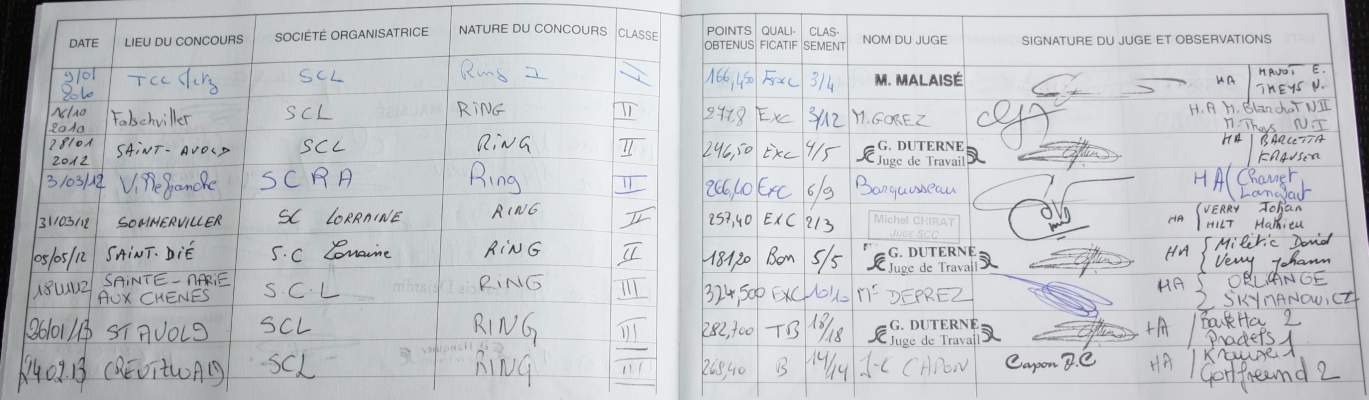 DATE LIEU DU CONCOURS SOCIÉTÉ ORGANISATRICE NATURE DU CONCOURS CLASSE POINTS OBTENUS QUALI-FICATIF CLAS-SEMENT NOM DU JUGE SIGNATURE DU JUGE ET OBSERVATIONS
2010 TCC SCL Ring I 166,450 Exc 3/4 M. MALAISÉ HA HAVOT E. THEYS N.
16/10 2010 Folschviller SCL RING II 277,8 EXC 3/12 M. GOREZ H.A M. Blanchot N II M. Theys N.I
28/01 2012 SAINT-AVOLD SCL RING II 246,50 EXC 4/5 G. DUTERNE Juge de Travail HA BARLETTA KRAUSER
3/03/12 Villefranche SCRA Ring II 266,40 EXC 6/9 Barquisseau HA Charret
31/03/12 SOMMERVILLER SC LORRAINE RING II 257,40 EXC 2/3 Michel CHIRAT Juge SCC HA VERRY Johan HILT Mathieu
05/05/12 SAINT-DIÉ S.C Lorraine RING II 181,20 Bon 5/5 G. DUTERNE Juge de Travail HA Militic David Verry Johann
SAINTE-MARIE AUX CHENES S.C.L RING III 324,500 EXC 10/10 Mr DEPREZ HA ORLANGE SKYMANOWICZ
26/01/13 ST AVOLD SCL RING III 282,700 TB 18/18 G. DUTERNE Juge de Travail HA 2 Pradets 1
24.02.13 CREUTZWALD SCL RING III 268,40 B 14/14 J-C CAPON Capon J.C HA Krauser 1 Gottfreund 2